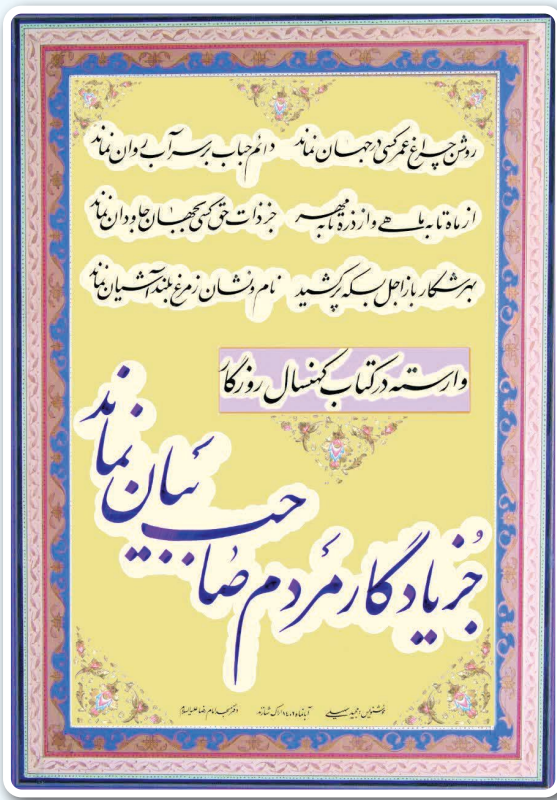 روشن چراغ عمر کسی در جهان نماند دائم حباب بر سر آب روان نماند
از ماه تا به ماهی و از ذره تا به مهر جز ذات حق کسی بجهان جاودان نماند
بهر شکار باز اجل بسکه پر کشید نام و نشان ز مرغ بلند آشیان نماند
وارسته در کتاب کهنسال روزگار
جز یادگار مردم صاحب بیان نماند